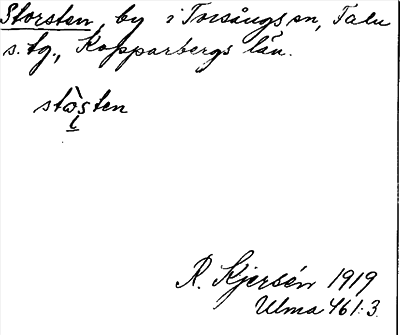 Storsten, by i Torsångs sn, Falu
s. tg., Kopparbergs län.
stò̱s̩ten
R. Kjersén 1919
Ulma 461:3.